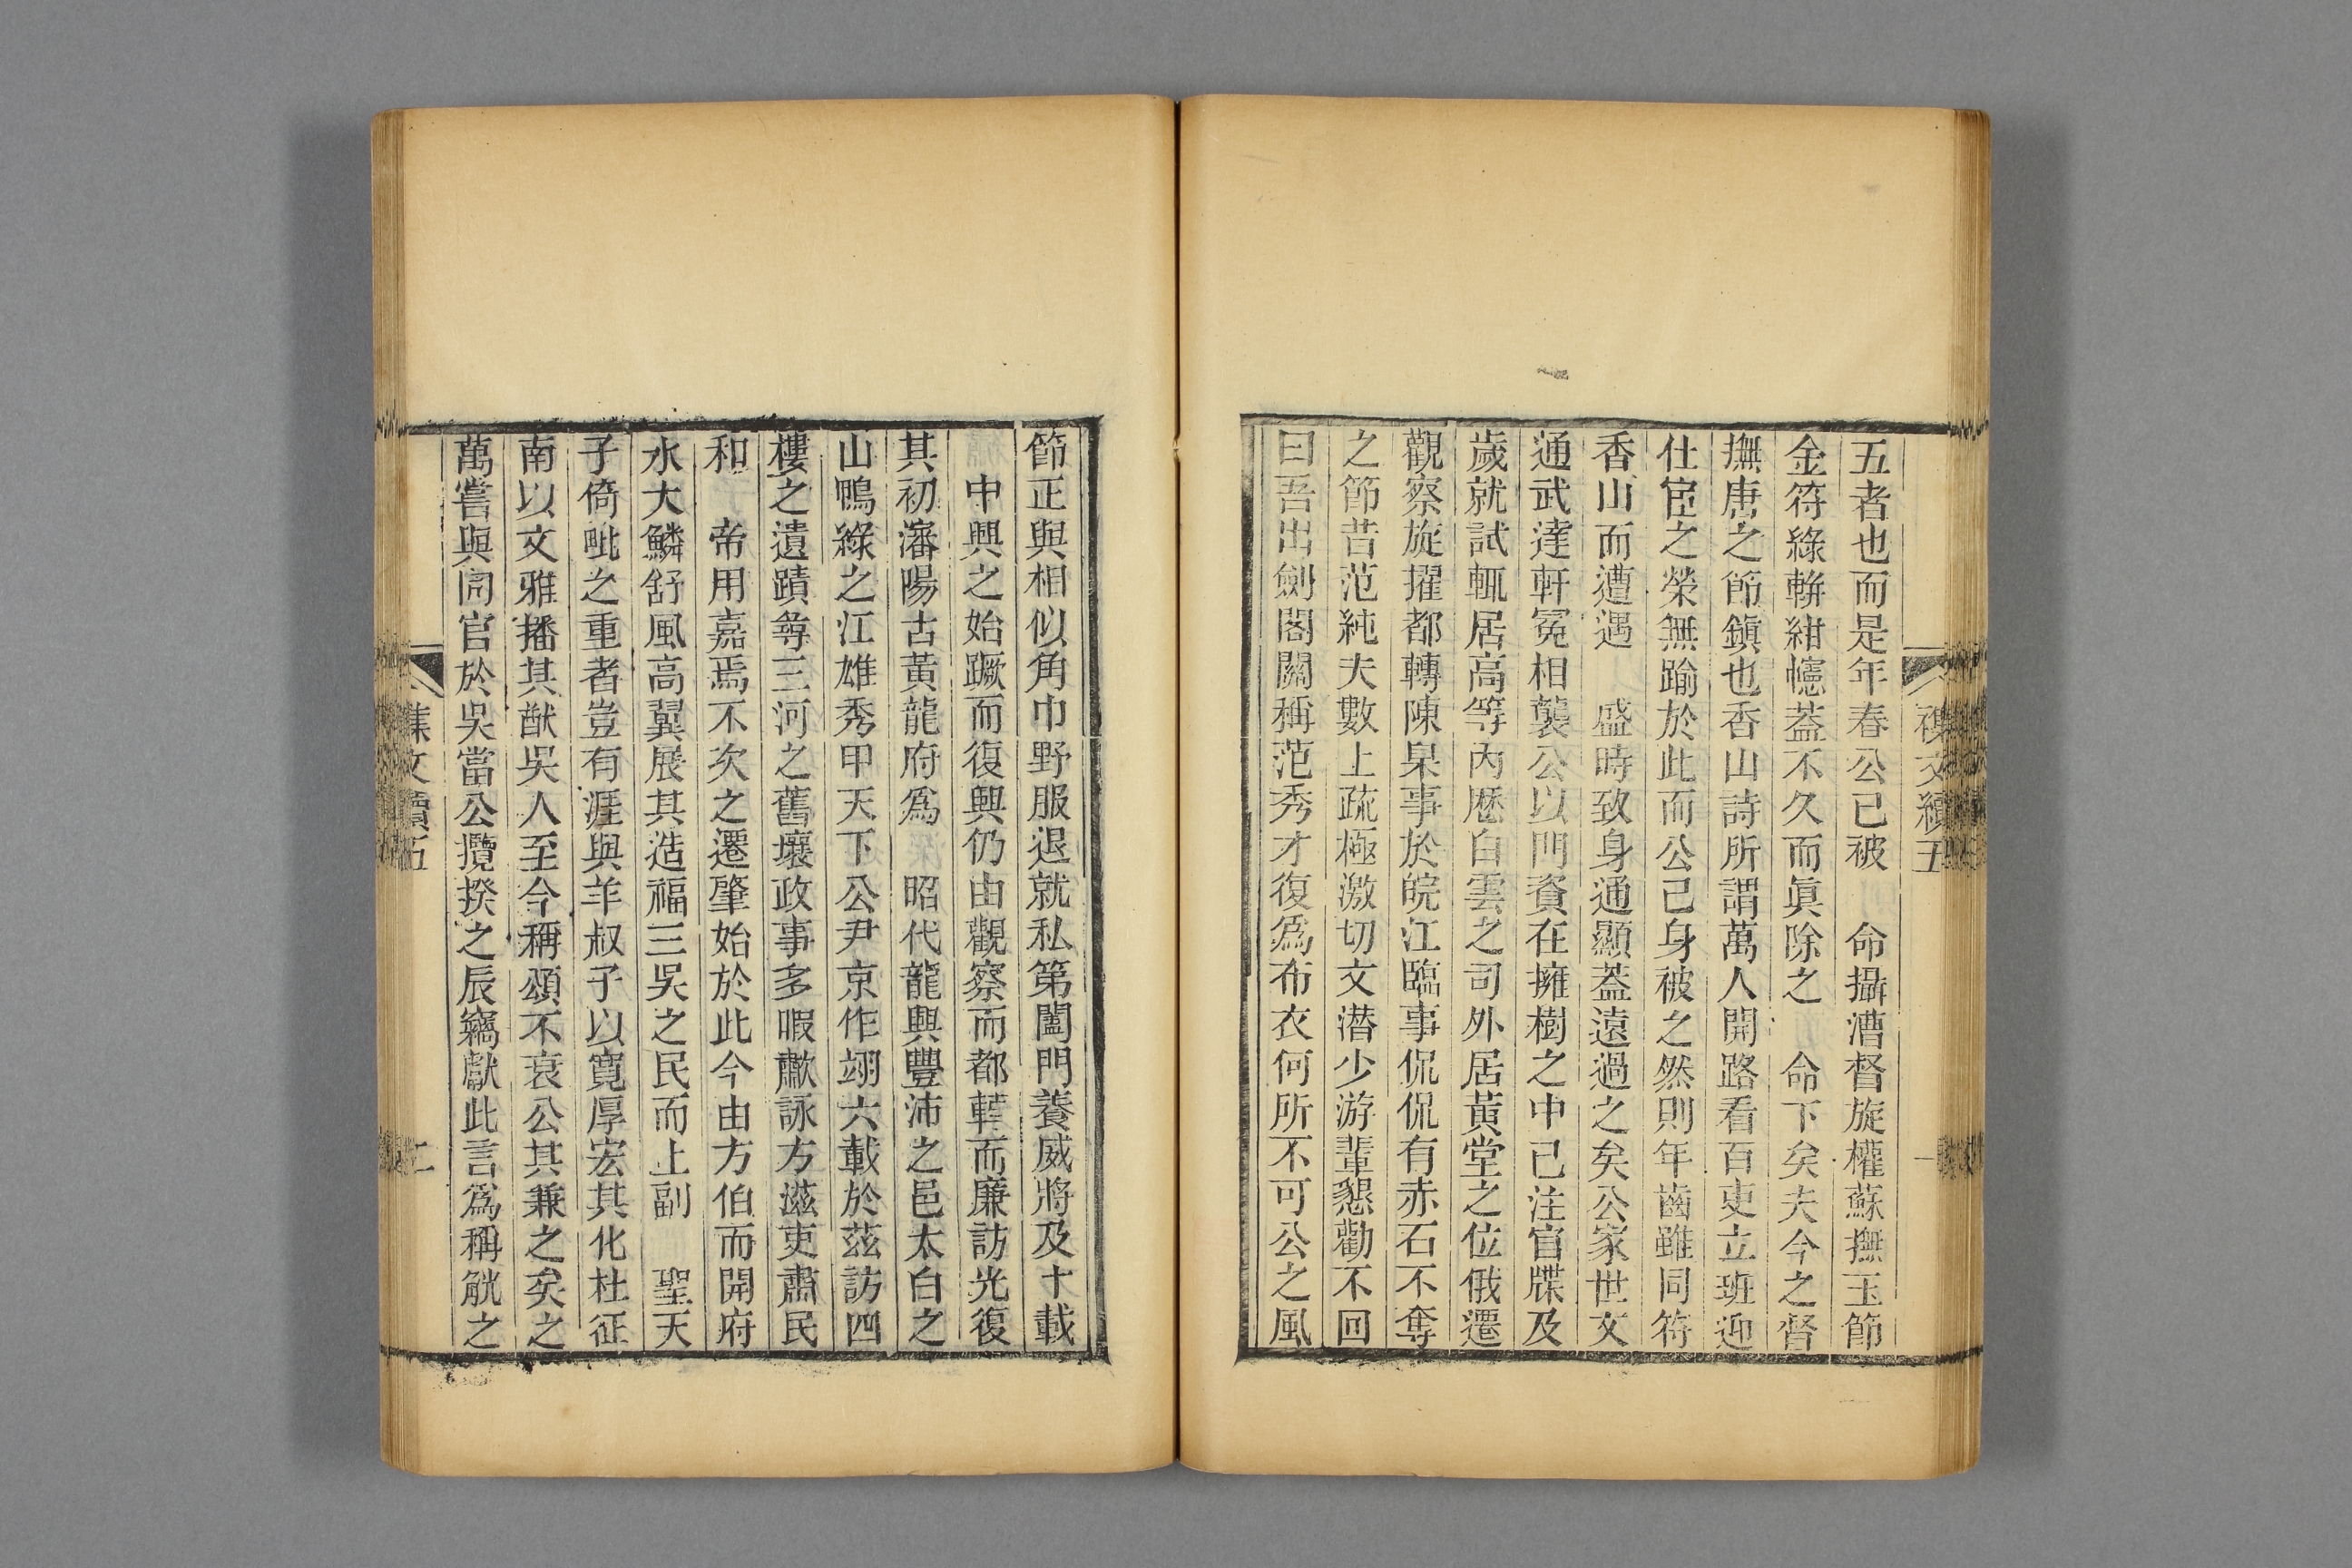 襍文續五
一
五者也而是年春公已被　命攝漕督旋權蘇撫玉節
金符綠軿紺幰蓋不久而眞除之　命下矣夫今之督
撫唐之節鎭也香山詩所謂萬人開路看百吏立班迎
仕宦之榮無踰於此而公己身被之然則年齒雖同符
香山而遭遇　盛時致身通顯蓋遠過之矣公家世文
通武達軒冕相襲公以門資在擁樹之中已注官牒及
歲就試輒居高等內歷白雲之司外居黃堂之位俄遷
觀察旋擢都轉陳臬事於皖江臨事侃侃有赤石不奪
之節苦范純夫數上疏極激切文潛少游輩懇勸不回
曰吾出劍閣關稱范秀才復爲布衣何所不可公之風
節正與相似角巾野服退就私第闔門養威將及十載
中興之始蹶而復興仍由觀察而都轉而廉訪光復
其初瀋陽古黃龍府爲　昭代龍興豐沛之邑太白之
山鴨綠之江雄秀甲天下公尹京作翊六載於茲訪四
樓之遺蹟尋三河之舊壤政事多暇歗詠方滋吏肅民
和　帝用嘉焉不次之遷肇始於此今由方伯而開府
水大鱗舒風高翼展其造福三吳之民而上副　聖天
子倚毗之重者豈有涯與羊叔子以寬厚宏其化杜征
南以文雅播其猷吳人至今稱頌不衰公其兼之矣之
萬嘗與同官於吳當公攬揆之辰竊獻此言爲稱觥之
文續五
二